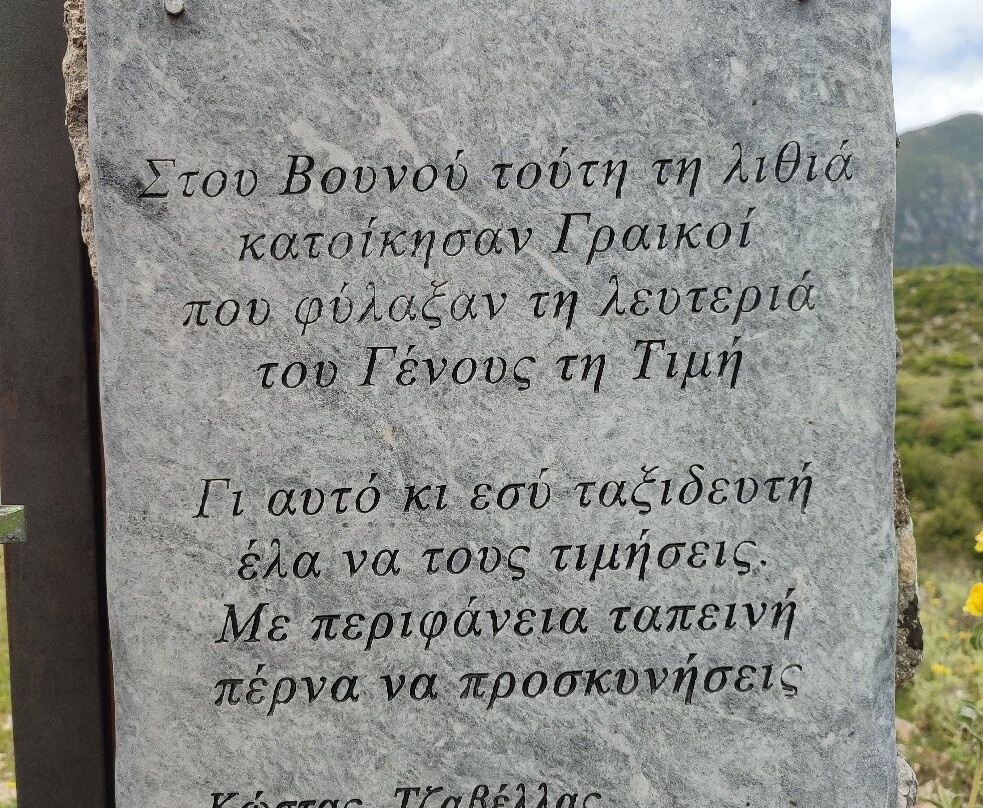 Στου Βουνού τούτη τη λιθιά
κατοίκησαν Γραικοί
που φύλαξαν τη λευτεριά
του Γένους τη Τιμή
Γι αυτό κι εσύ ταξιδευτή
έλα να τους τιμήσεις.
Με περιφάνεια ταπεινή
πέρνα να προσκυνήσεις
Κώστας Τζαβέλλας